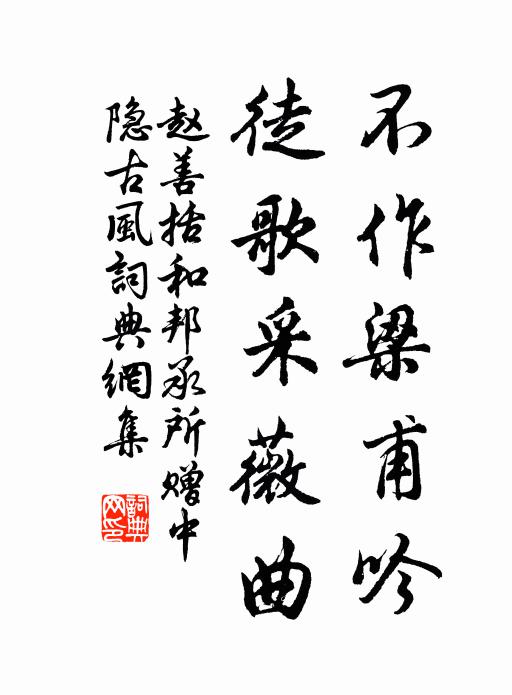 不作梁甫吟
徒歌采薇曲
赵善括和邦承所赠中
隐古風詞典網集
詞典網印